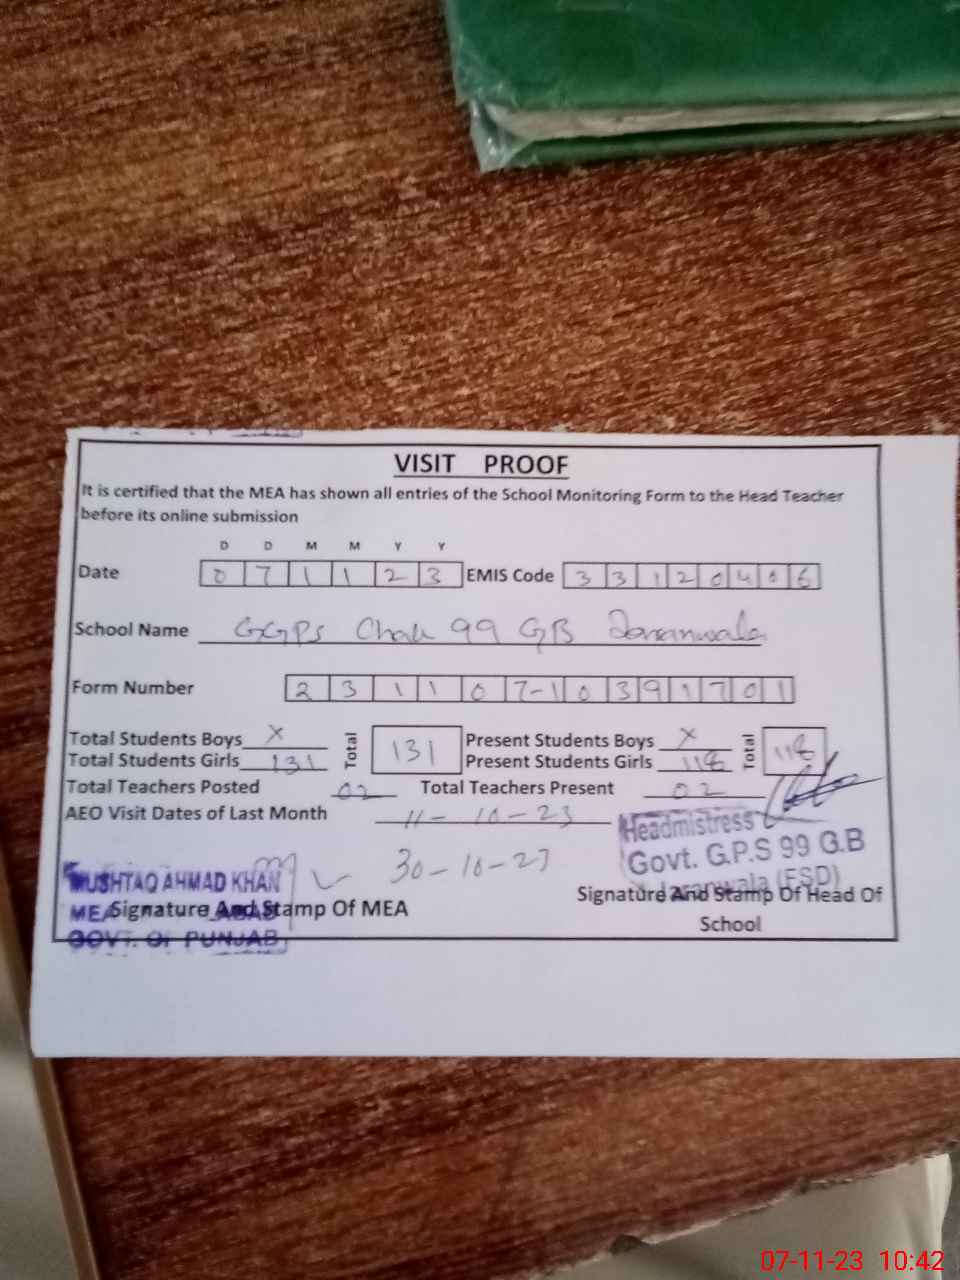 VISIT PROOF
It is certified that the MEA has shown all entries of the School Monitoring Form to the Head Teacher
before its online submission
D D M M Y Y
Date 0 7 1 1 2 3 EMIS Code 3 3 1 2 0 4 0 6
School Name GGPS Chak 99 GB Jaranwala
Form Number 2 3 1 1 0 7-1 0 3 9 1 7 0 1
Total Students Boys X Total 131 Present Students Boys X Total 118
Total Students Girls 131 Present Students Girls 118
Total Teachers Posted 02 Total Teachers Present 02
AEO Visit Dates of Last Month 11-10-23
30-10-23
Headmistress
Govt. G.P.S 99 G.B
Jaranwala (FSD)
MUSHTAQ AHMAD KHAN
MEA
GOVT. OF PUNJAB
Signature And Stamp Of MEA
Signature And Stamp Of Head Of
School
07-11-23 10:42